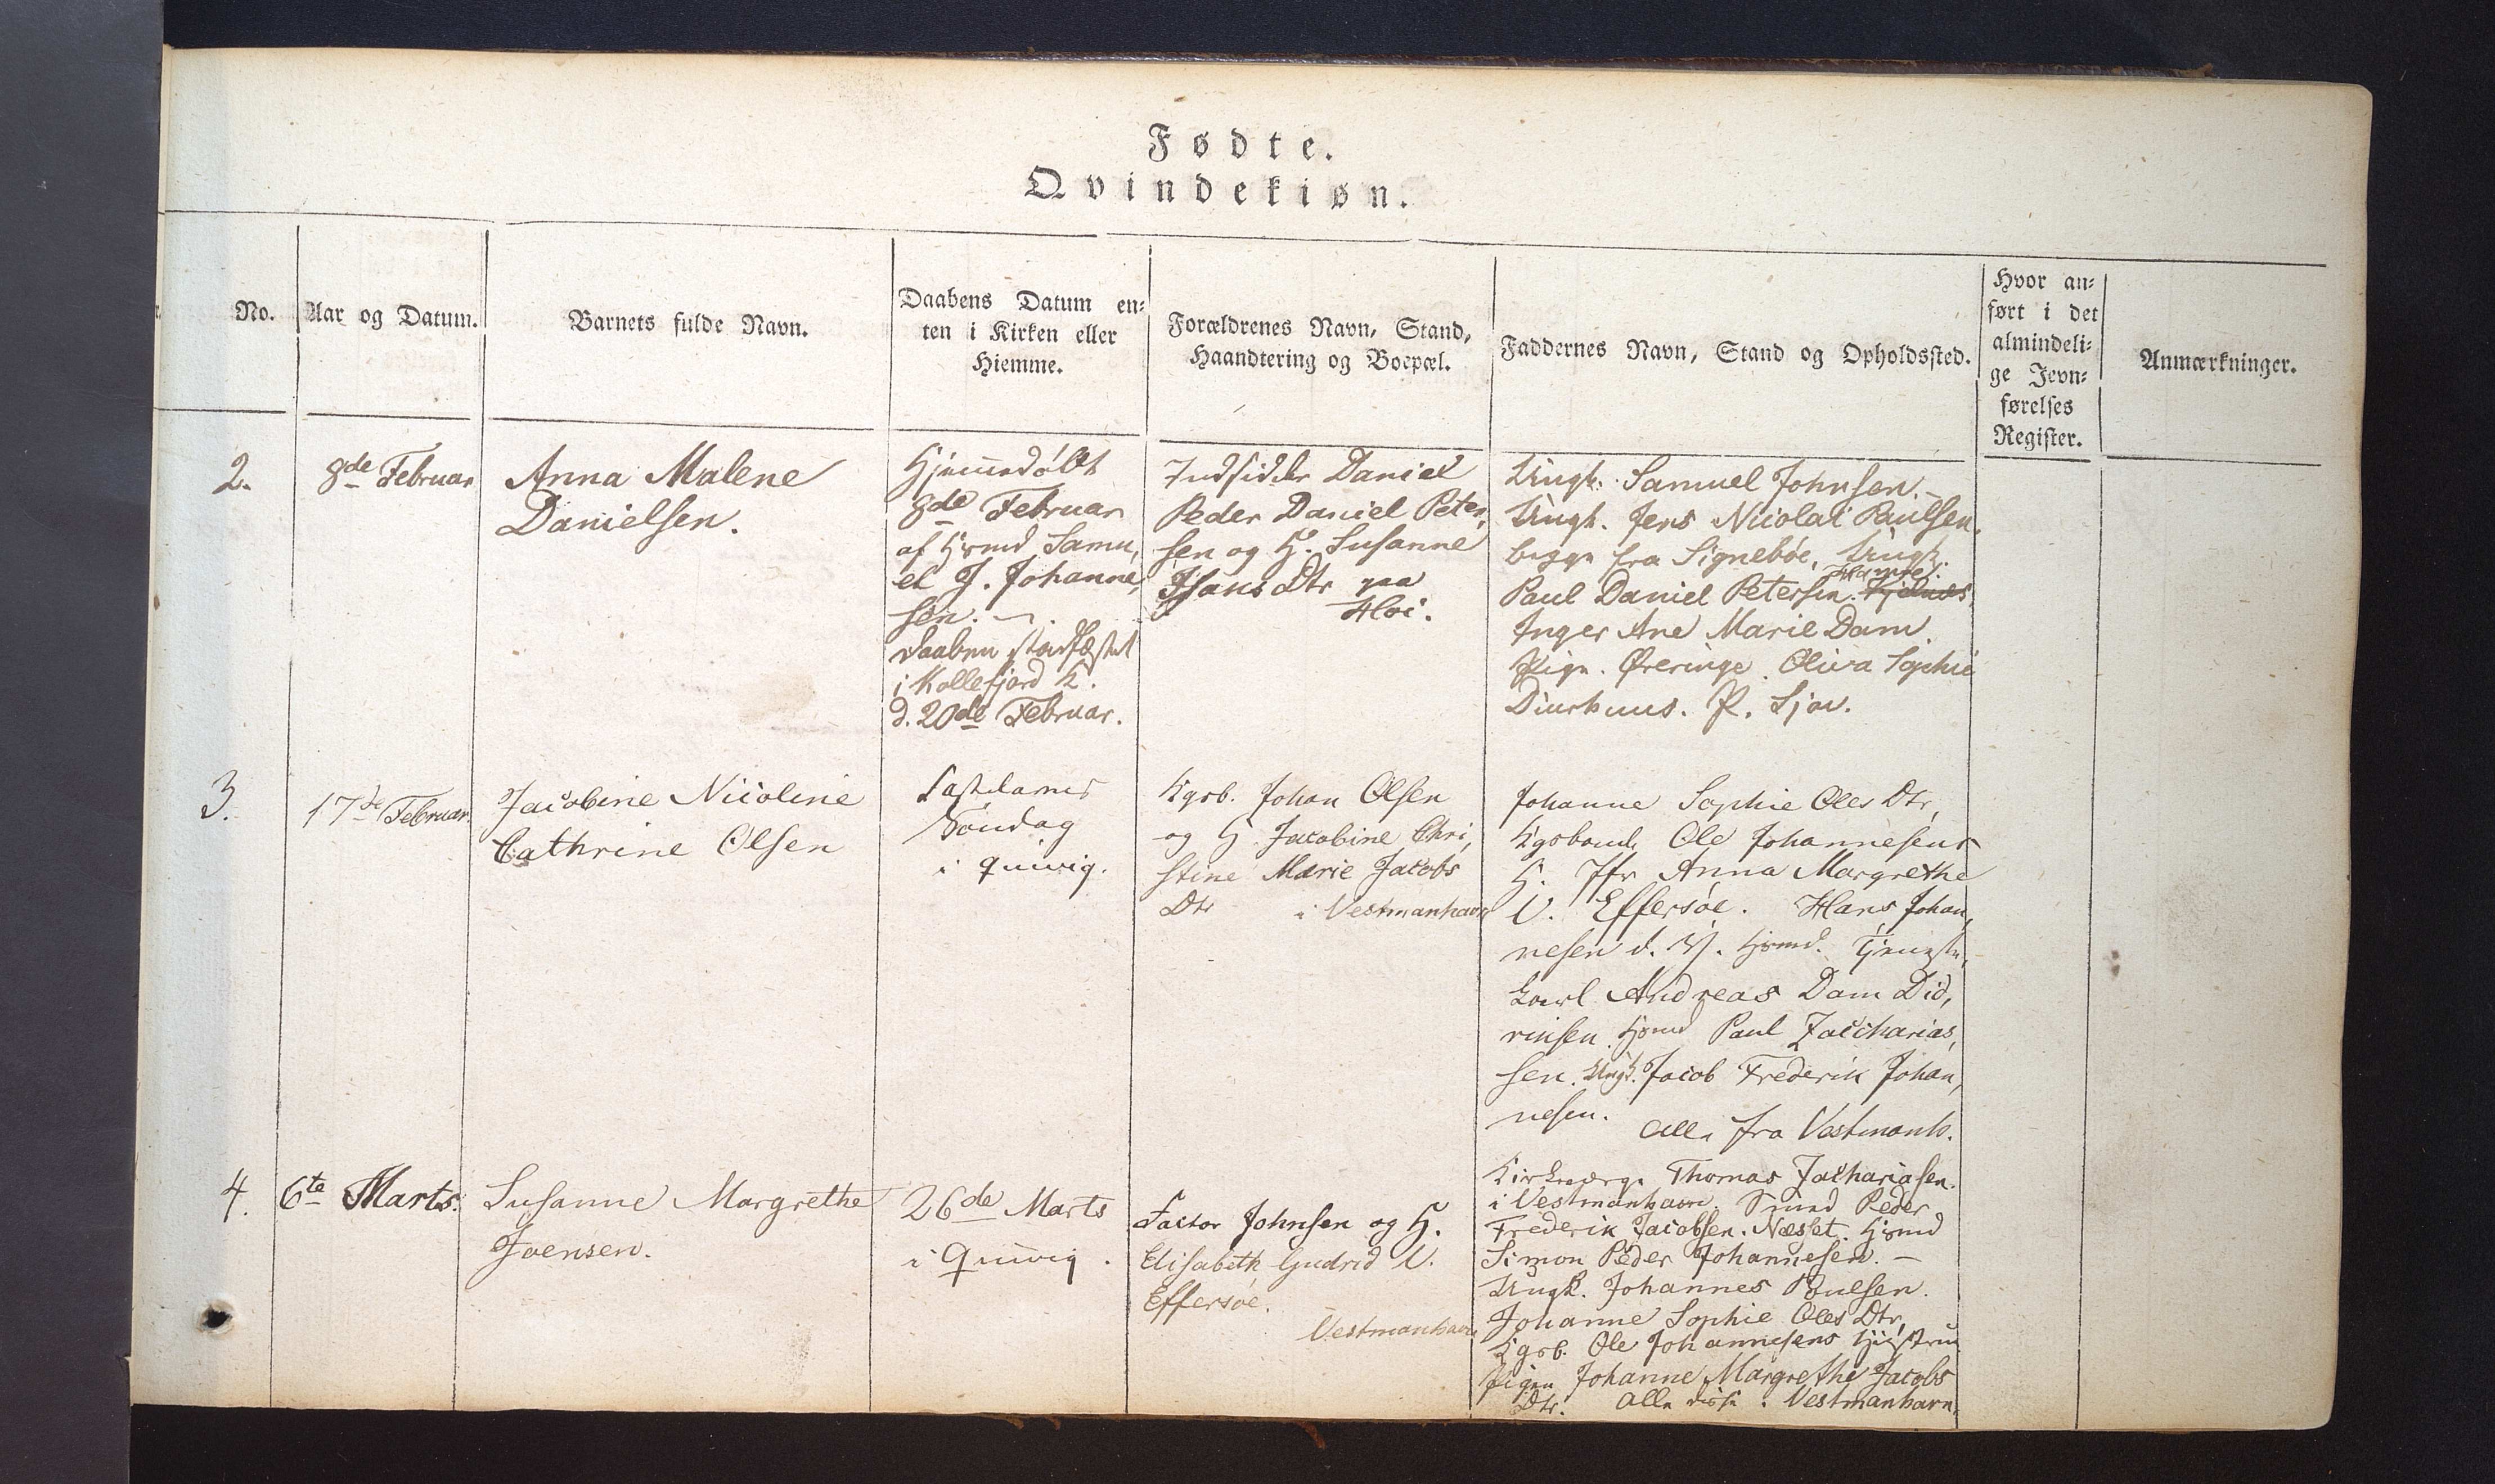 Fødte.
Qvindekiøn.
No.
Aar og Datum.
Barnets fulde Navn.
Daabens Datum en-
ten i Kirken eller
Hiemme.
Forældrenes Navn, Stand,
Haandtering og Boepæl.
Faddernes Navn, Stand og Opholdssted.
Hvor an-
ført i det
almindeli-
ge Jevn-
førelses
Register.
Anmærkninger.
2.
8de Februar
Anna Malene
Danielsen.
Hjemmedøbt
8de Februar
af Hsmd Samu,
el J. Johanne,
sen.
Daaben stadfæstet
i Kollefjord K.
d. 20de Februar.
Indsidder Daniel
Peder Daniel Peter,
sen og H. Susanne
Hans Dtr paa
Hoi.
Ungk. Samuel Johnsen.
Ungk. Jens Nicolai Paulsen.
begge fra Signebøe, Ungk.
Paul Daniel Petersen.
Inger Ane Marie Dam.
Pige. Øreringe. Oliva Sophie
Diurhuus. P. Sjov.
3.
17de Februar.
Jacobine Nicoline
Cathrine Olsen
Fastelavns
Søndag
i Quivig.
Kgsb. Johan Olsen
og H. Jacobine Chri,
stine Marie Jacobs
Dtr i Vestmanhavn
Johanne Sophie Oles Dtr,
Kgsbond. Ole Johannesens
H. Jfr Anna Margrethe
V. Effersøe. Hans Johan,
nesen d. Y. Hsmd. Tjeneste,
karl Andreas Dam Did,
riksen. Hsmd Paul Zaccharias,
sen. Ungk. Jacob Frederik Johan,
nesen.
alle fra Vestmanh.
4.
6te Marts.
Susanne Margrethe
Joensen.
26de Marts
i Quivig.
Factor Johnsen og H.
Elisabeth Gudrid V.
Effersøe.
Vestmanhavn
Kirkeværge Thomas Jachariasen.
i Vestmanhavn. Smed Peder
Frederik Jacobsen. Næsset. Hsmd
Simon Peder Johannesen. —
Ungk. Johannes Poulsen.
Johanne Sophie Oles Dtr,
Kgsb. Ole Johannesens Hustrue
Pigen Johanne Margrethe Jacobs
Dtr. Alle disse i Vestmanhavn.